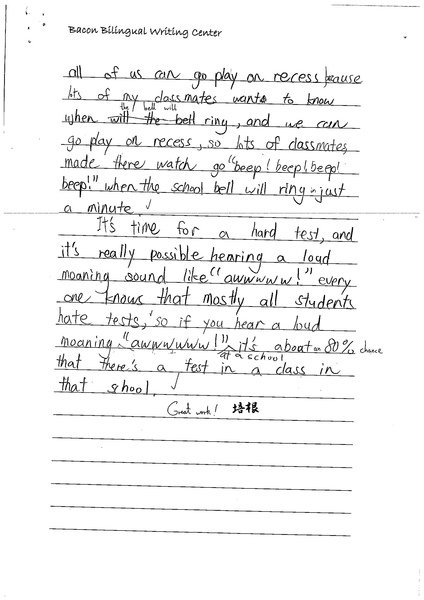 Bacon Bilingual Writing Center
all of us can go play on recess because
lots of my classmates wants to know
the bell will
when will the bell ring, and we can
go play on recess, so lots of classmates
made there watch go "beep! beep! beep!
beep!" when the school bell will ring in just
a minute.
It's time for a hard test, and
it's really possible hearing a loud
moaning sound like "awwwww!" every
one knows that mostly all students
hate tests, so if you hear a loud
moaning "awwwwww!" it's about an 80% chance
at a school
that there's a test in a class in
that shool.
Great work! 培根